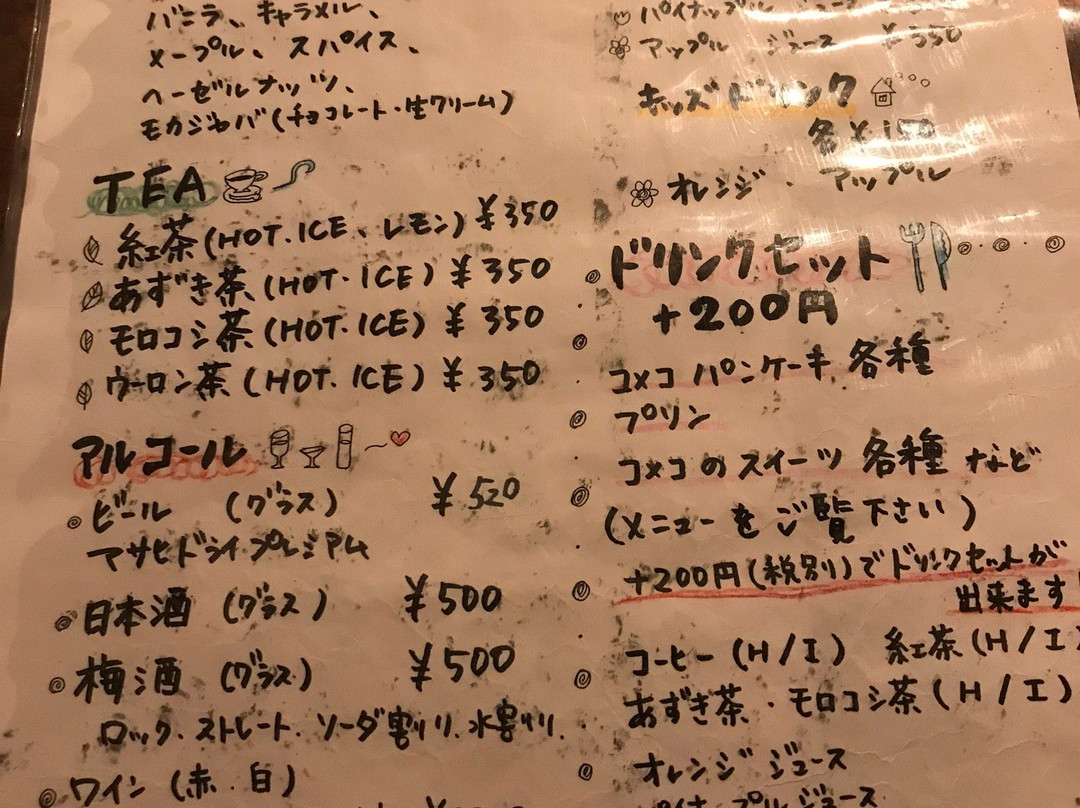 バニラ、キャラメル、
メープル、スパイス、
ヘーゼルナッツ、
モカジャバ(チョコレート・生クリーム)
TEA
紅茶(HOT.ICE、レモン)¥350
あずき茶(HOT.ICE)¥350
モロコシ茶(HOT.ICE)¥350
ウーロン茶(HOT.ICE)¥350
アルコール
ビール (グラス) ¥520
アサヒドライプレミアム
日本酒 (グラス) ¥500
梅酒 (グラス) ¥500
ロック.ストレート.ソーダ割り.水割り.
ワイン(赤.白)
パイナップルジュース ¥350
アップル ジュース ¥350
キッズドリンク
各¥150
オレンジ・アップル
ドリンクセット
+200円
コメコパンケーキ各種
プリン
コメコのスイーツ各種など
(メニューをご覧下さい)
+200円(税別)でドリンクセットが
出来ます!
コーヒー(H/I) 紅茶(H/I)
あずき茶・モロコシ茶(H/I)
オレンジジュース
パイナップルジュース